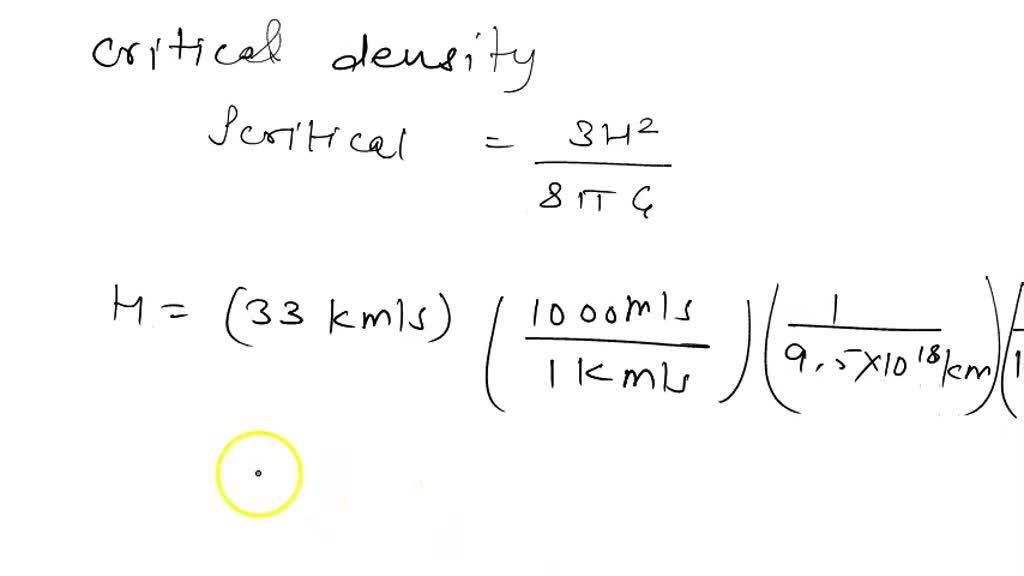 critical density
ρcritical = 3H² / 8πG
H = (33 km/s) (1000 m/s / 1 km/s) (1 / 9.5×10¹⁸ km) (